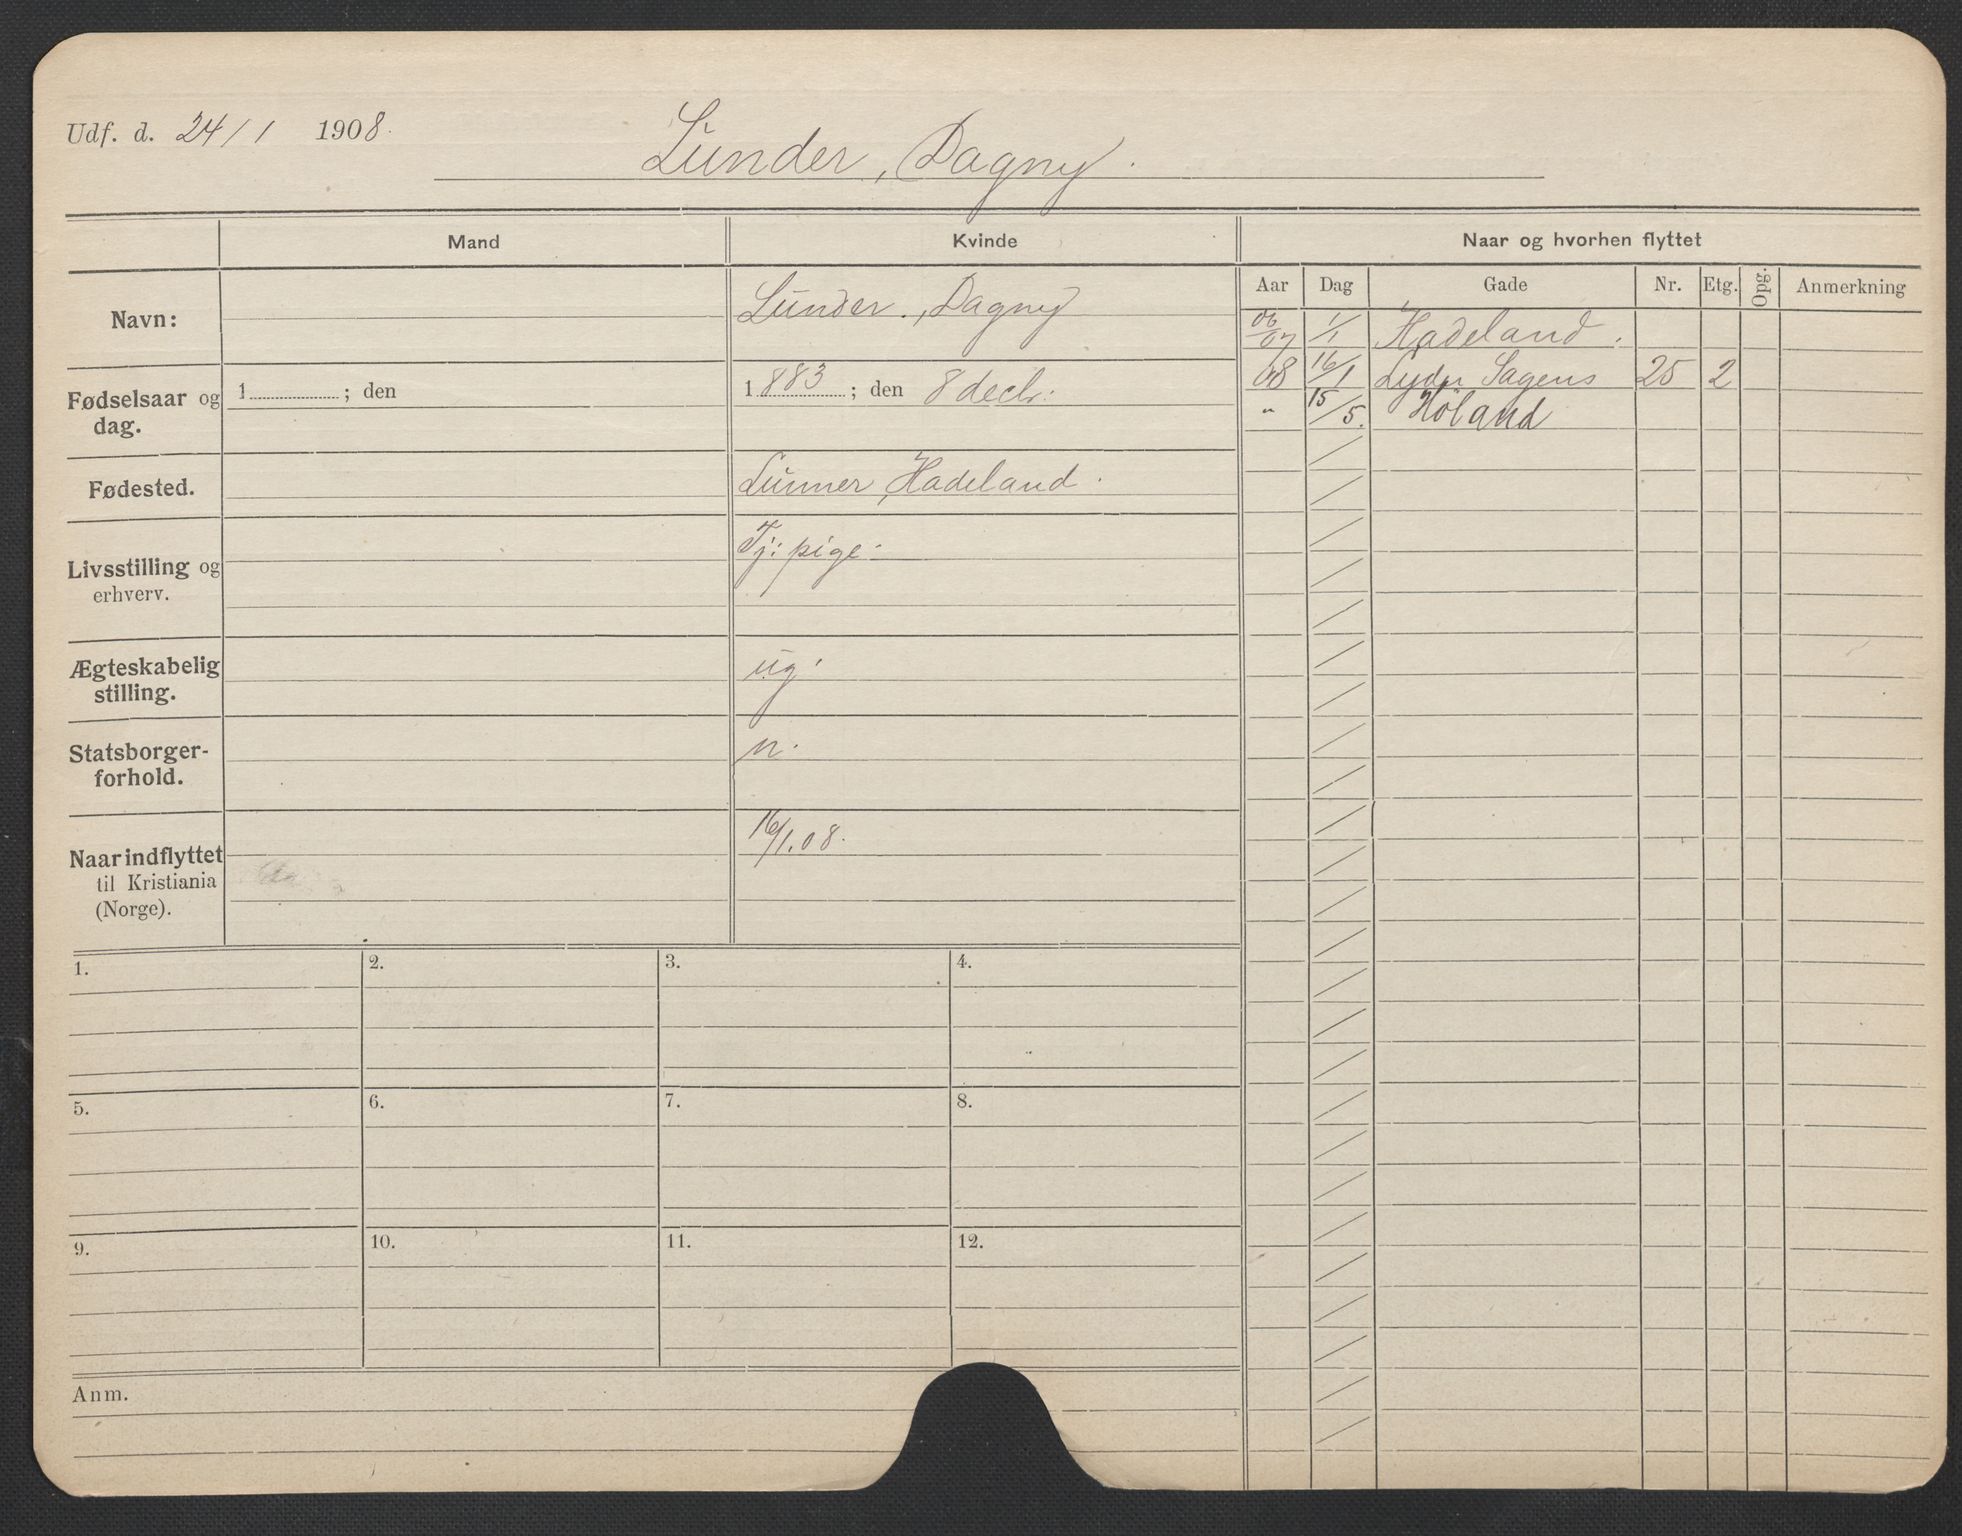 Udf. d. 24/1 1908.
Lunder, Dagny.
Mand Kvinde Naar og hvorhen flyttet
Aar Dag Gade Nr. Etg. Opg. Anmerkning
Navn: Lunder, Dagny
06/07 1/1 Hadeland.
08 16/1 Lyder Sagens 25 2
" 15/5. Höland
Fødselsaar og 1 ; den 1883 ; den 8 decbr.
dag.
Fødested. Lunner, Hadeland.
Livsstilling og Tj: pige
erhverv.
Ægteskabelig ug
stilling.
Statsborger- n.
forhold.
Naar indflyttet 16/1.08.
til Kristiania
(Norge).
1. 2. 3. 4.
5. 6. 7. 8.
9. 10. 11. 12.
Anm.